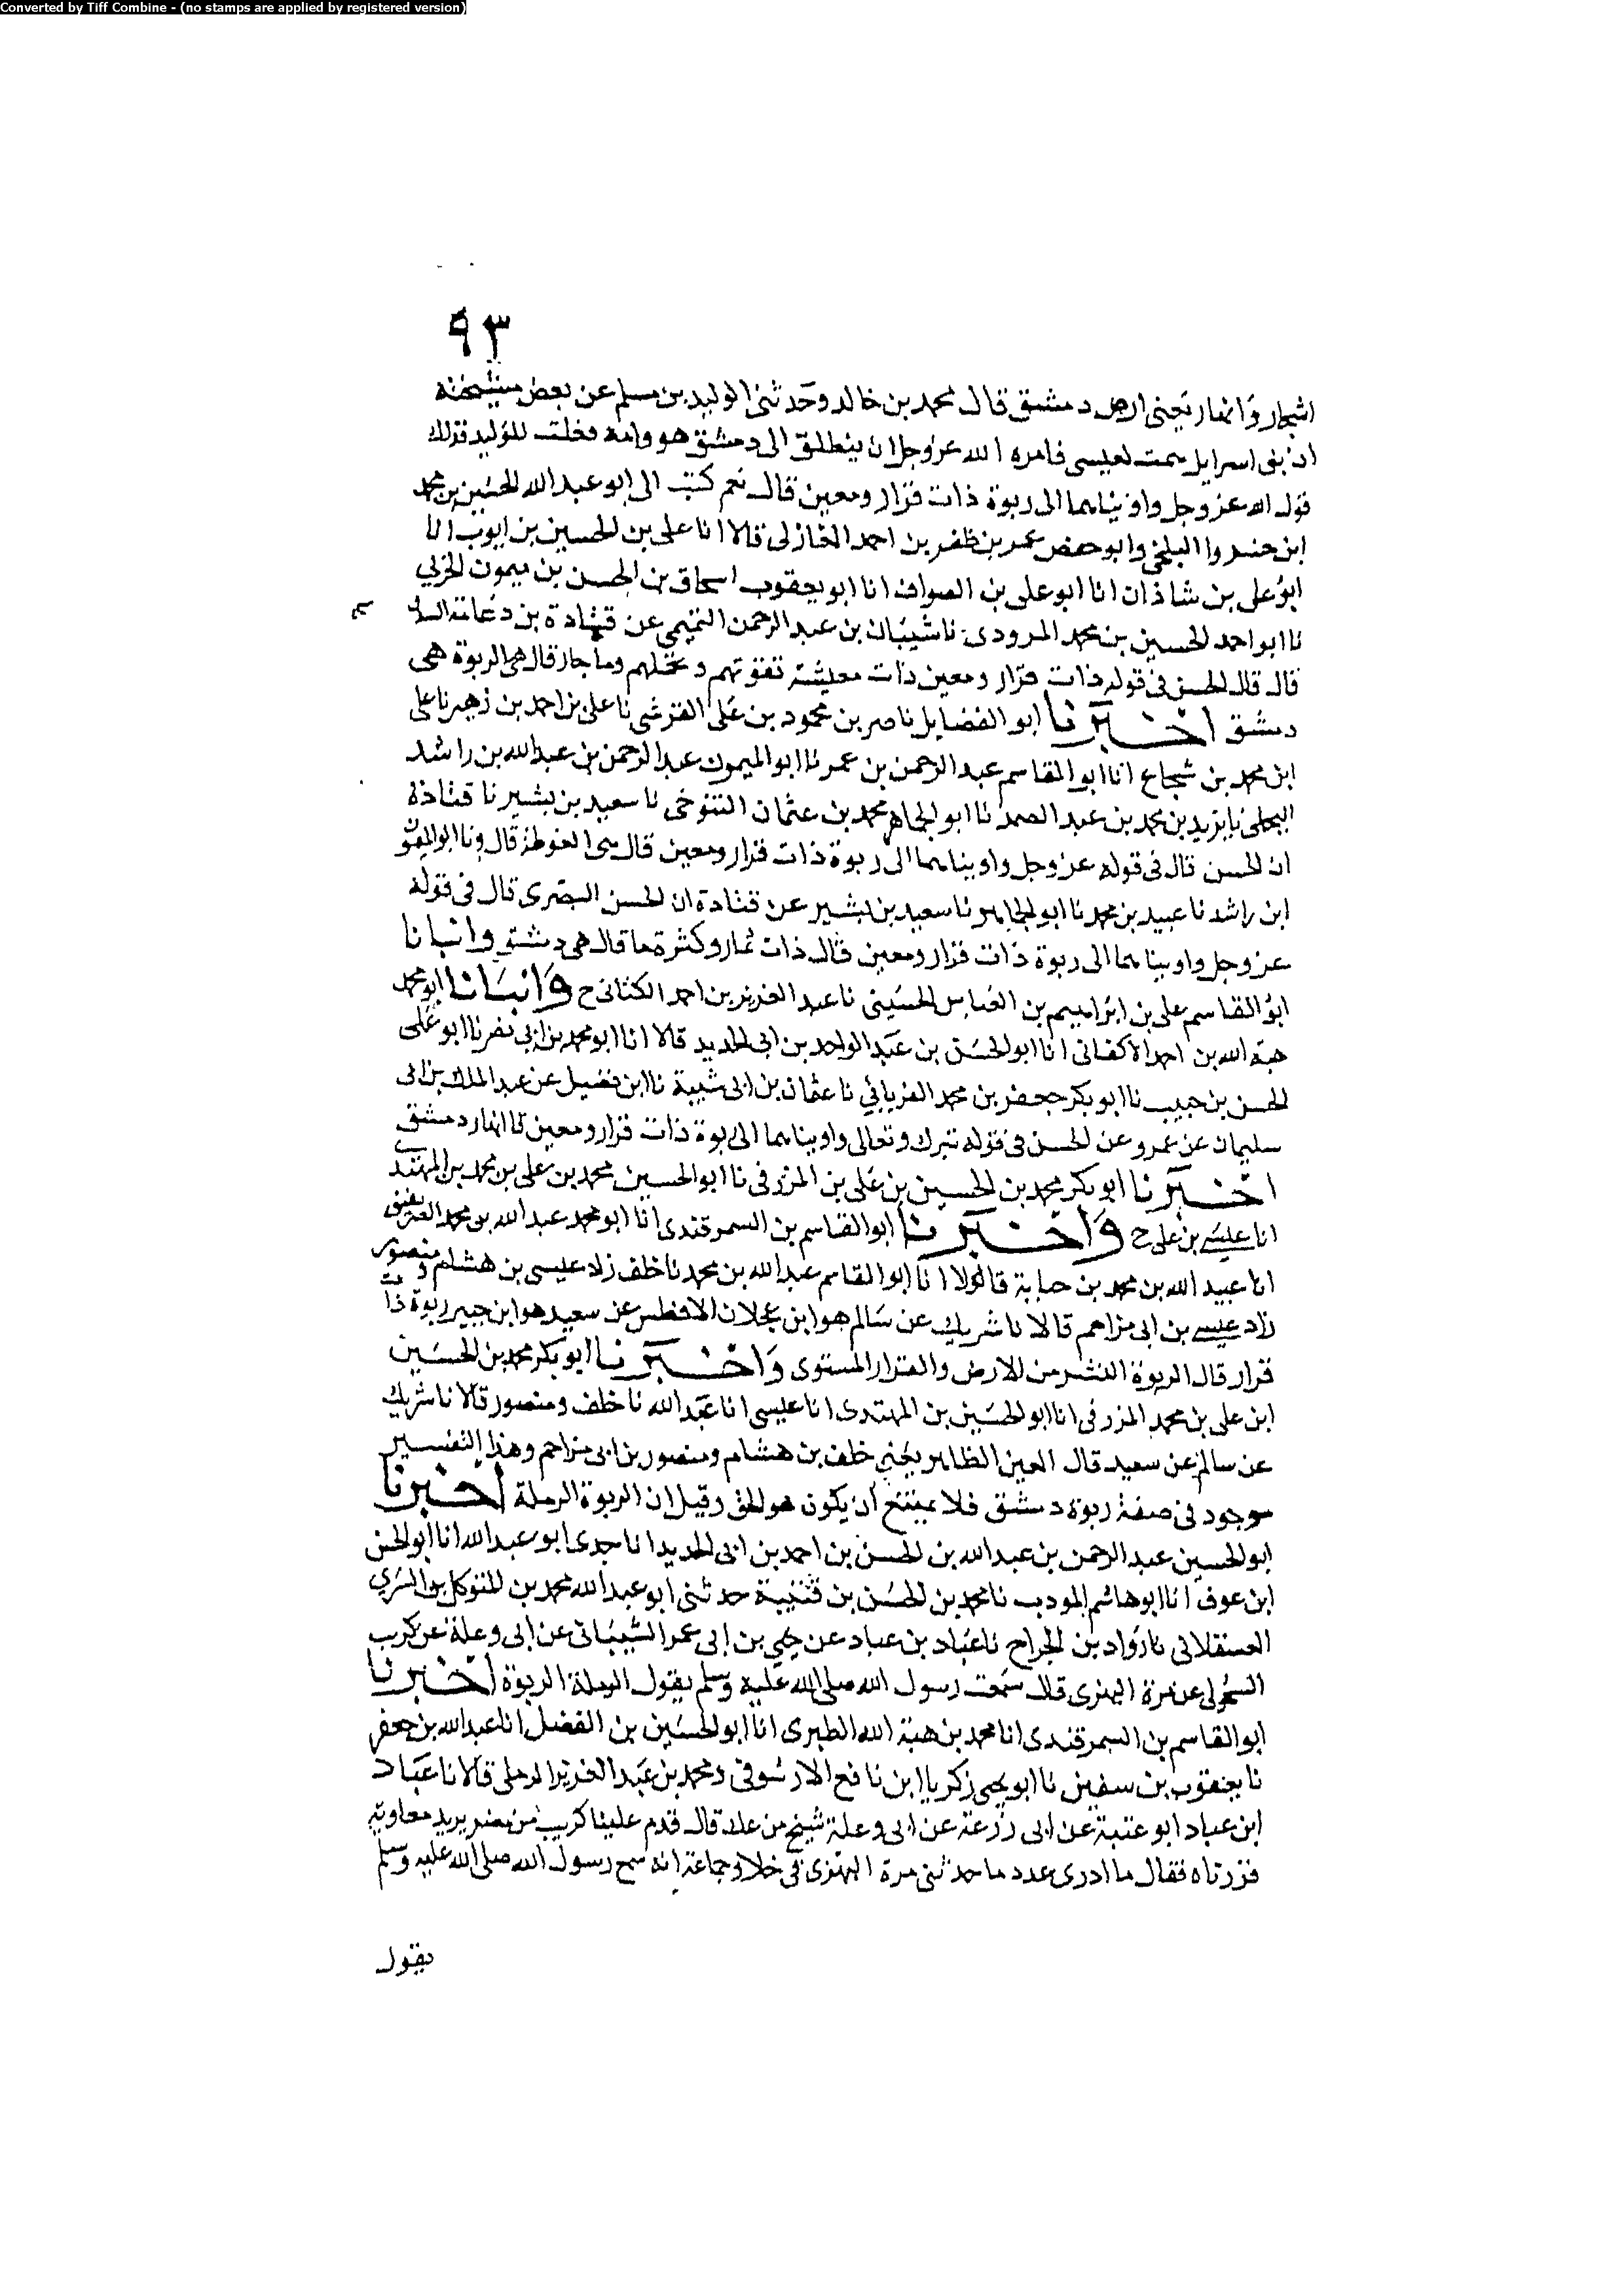 Converted by Tiff Combine - (no stamps are applied by registered version)
٩٣
اشجار وانهار يعنى ارض دمشق قال محمد بن خالد وحدثنى الوليد بن مسلم عن بعض مشيخته
ان بنى اسرايل همت لعيسى فامره الله عز وجل ان ينطلق الى دمشق هو وامه فقلت للوليد فذلك
قول الله عز وجل واويناهما الى ربوة ذات قرار ومعين قال نعم كتب الى ابو عبد الله الحسين بن محمد
ابن خسروا البلخى وابو حفص عمر بن ظفر بن احمد المغازلى قالا انا على بن الحسين بن ايوب انا
ابو على بن شاذان انا ابو على بن الصواف انا ابو يعقوب اسحاق بن الحسن بن ميمون الحربي
نا ابو احمد الحسين بن محمد المرودى نا شيبان بن عبد الرحمن التميمى عن قتادة بن دعامة
قال قال الحسن فى قوله ذات قرار ومعين ذات معيشة تقوتهم وتحملهم وما جار قال هى الربوة هى
دمشق اخبرنا ابو الفضايل ناصر بن محمود بن على القرشى نا على بن احمد بن زهير نا على
ابن محمد بن شجاع انا ابو القاسم عبد الرحمن بن عمر نا ابو الميمون عبد الرحمن بن عبد الله بن راشد
البجلى نا يزيد بن محمد بن عبد الصمد نا ابو الجماهر محمد بن عثمان التنوخى نا سعيد بن بشير نا قتادة
ان الحسن قال فى قوله عز وجل واويناهما الى ربوة ذات قرار ومعين قال هى الغوطة قال ونا ابو الميمون
ابن راشد نا عبيد بن محمد نا ابو الجماهر نا سعيد بن بشير عن قتادة ان الحسن البصرى قال فى قوله
عز وجل واويناهما الى ربوة ذات قرار ومعين قال ذات ثمار وكثرة ما قال هى دمشق وانبانا
ابو القاسم على بن ابراهيم بن العباس الحسينى نا عبد العزيز بن احمد الكتانى ح وانبانا ابو محمد
هبة الله بن احمد الاكفانى انا ابو الحسن بن عبد الواحد بن ابى الحديد قالا انا ابو محمد بن ابى نصر نا ابو على
الحسن بن حبيب نا ابو بكر جعفر بن محمد الفريابي نا عثمان بن ابى شيبة نا ابن فضيل عن عبد الملك بن ابى
سليمان عن عمرو عن الحسن فى قوله تبرك وتعالى واويناهما الى ربوة ذات قرار ومعين قال انهار دمشق
اخبرنا ابو بكر محمد بن الحسين بن على بن المزرفى نا ابو الحسين محمد بن على بن محمد بن المهتدى
انا عيسى بن على ح واخبرنا ابو القاسم بن السمرقندى انا ابو محمد عبد الله بن محمد الصريفينى
انا عبيد الله بن محمد بن حبابة قالولا انا ابو القاسم عبد الله بن محمد نا خلف زاد عيسى بن هشام ومنصور
زاد عيسى بن ابى مزاحم قالا نا شريك عن سالم هو ابن عجلان الافطس عن سعيد هو ابن جبير ربوة ذات
قرار قال الربوة النشز من الارض والقرار المستوى واخبرنا ابو بكر محمد بن الحسين
ابن على بن محمد المزرفى انا ابو الحسين بن المهتدى انا عيسى انا عبد الله نا خلف ومنصور قالا نا شريك
عن سالم عن سعيد قال العين الظاهر يعنى خلف بن هشام ومنصور بن ابى مزاحم وهذا التفسير
موجود فى صفة ربوة دمشق فلا يمتنع ان يكون هو الحق وقيل ان الربوة الرملة اخبرنا
ابو الحسين عبد الرحمن بن عبد الله بن الحسن بن احمد بن ابى الحديد انا جدى ابو عبد الله انا ابو الحسن
ابن عوف انا ابو هاشم المودب نا محمد بن الحسن بن قتيبة حدثنى ابو عبد الله محمد بن المتوكل بن السري
العسقلانى نا رواد بن الجراح نا عباد بن عباد عن يحيى بن ابى عمر الشيبانى عن ابى وعلة عن كريب
السحولى عن مرة البهزى قال سمعت رسول الله صلى الله عليه وسلم يقول الرملة الربوة اخبرنا
ابو القاسم بن السمرقندى انا محمد بن هبة الله الطبرى انا ابو الحسين بن الفضل انا عبد الله بن جعفر
نا يعقوب بن سفين نا ابو يحيى زكريا ابن نافع الارسوفى ومحمد بن عبد العزيز الرملى قالا نا عباد
ابن عباد ابو عتبة عن ابى زرعة عن ابى وعلة شيخ من عك قال قدم علينا كريب من مصر يريد معاوية
فزرناه فقال ما ادرى عدد ما حدثنى مرة البهزى فى خلا وجماعة انه سمع رسول الله صلى الله عليه وسلم
يقول